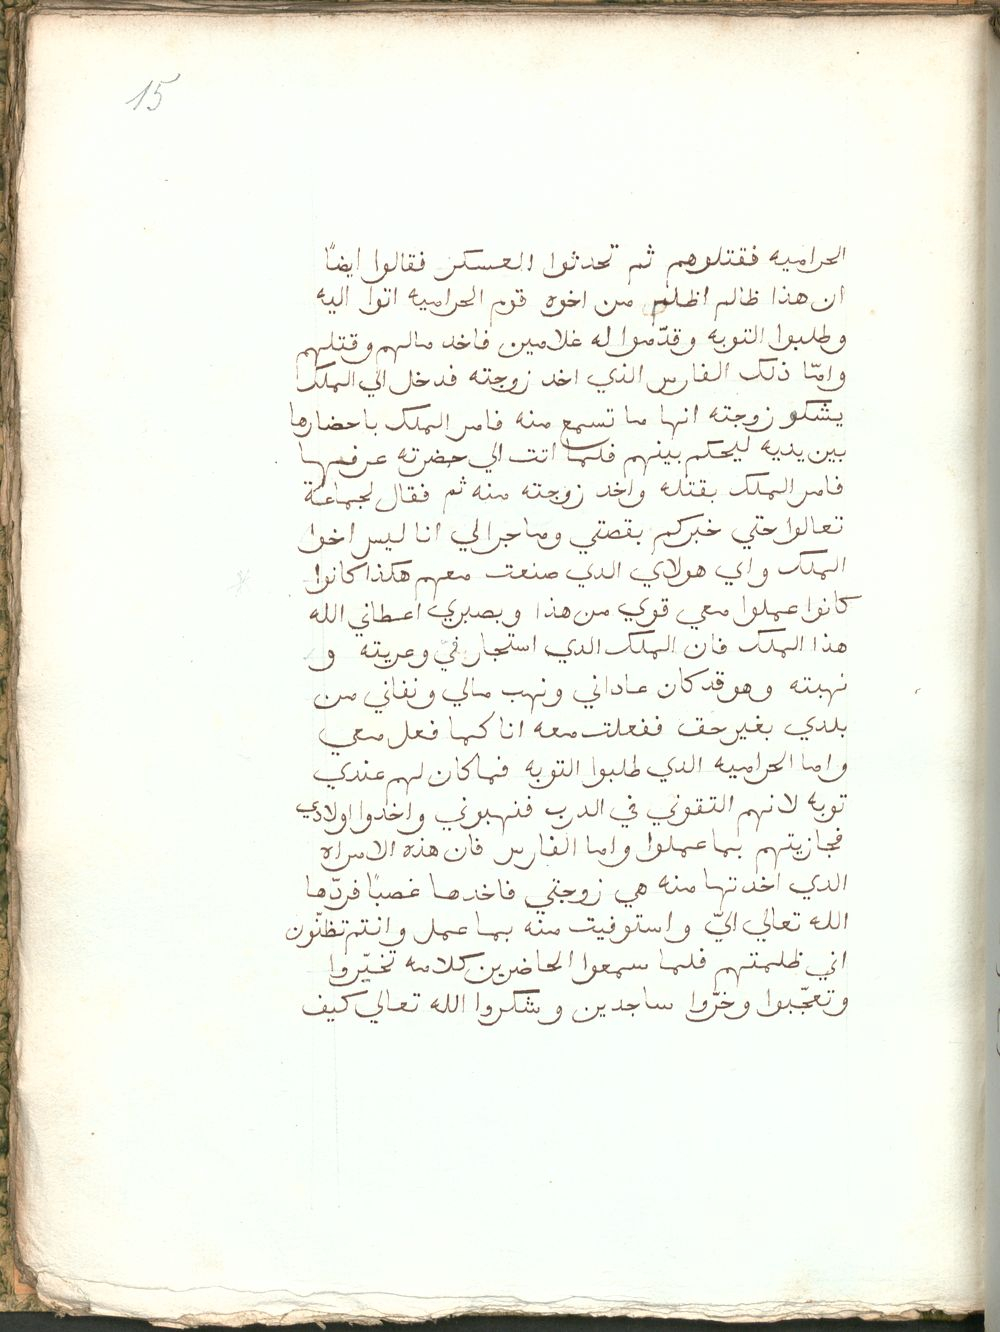 15
الحراميه فقتلوهم ثم تحدثوا العسكر فقالوا ايضًا
ان هذا ظالم اظلم من اخوه قوم الحراميه اتوا اليه
وطلبوا التوبه وقدّموا له غلامين فاخد مالهم وقتلهم
وامّا ذلك الفارس الذي اخد زوجته فدخل الي الملك
يشكو زوجته انها ما تسمع منه فامر الملك باحضارها
بين يديه ليحكم بينهم فلما اتت الي حضرته عرفها
فامر الملك بقتله واخد زوجته منه ثم فقال لجماعة
تعالوا حتي خبركم بقصتي وما جرا لي انا ليس اخوا
الملك واي هولاي الدي صنعت معهم هكذا كانوا
كانوا عملوا معي قوي من هذا وبصبري اعطاني الله
هذا الملك فان الملك الدي استجار فيّ وعريته و
نهبته وهو قد كان عاداني ونهب مالي ونفاني من
بلدي بغير حق ففعلت معه انا كما فعل معي
واما الحراميه الدي طلبوا التوبه فما كان لهم عندي
توبه لانهم التقوني في الدرب فنهبوني واخدوا اولادي
فجازيتهم بما عملوا واما الفارس فان هذه الامراه
الدي اخدتها منه هي زوجتي فاخدها غصبًا فردّها
الله تعالي اليّ واستوفيت منه بما عمل وانتم تظنّون
اني ظلمتهم فلما سمعوا الحاضرين كلامه تخيّروا
وتعجّبوا وخرّوا ساجدين وشكروا الله تعالي كيف